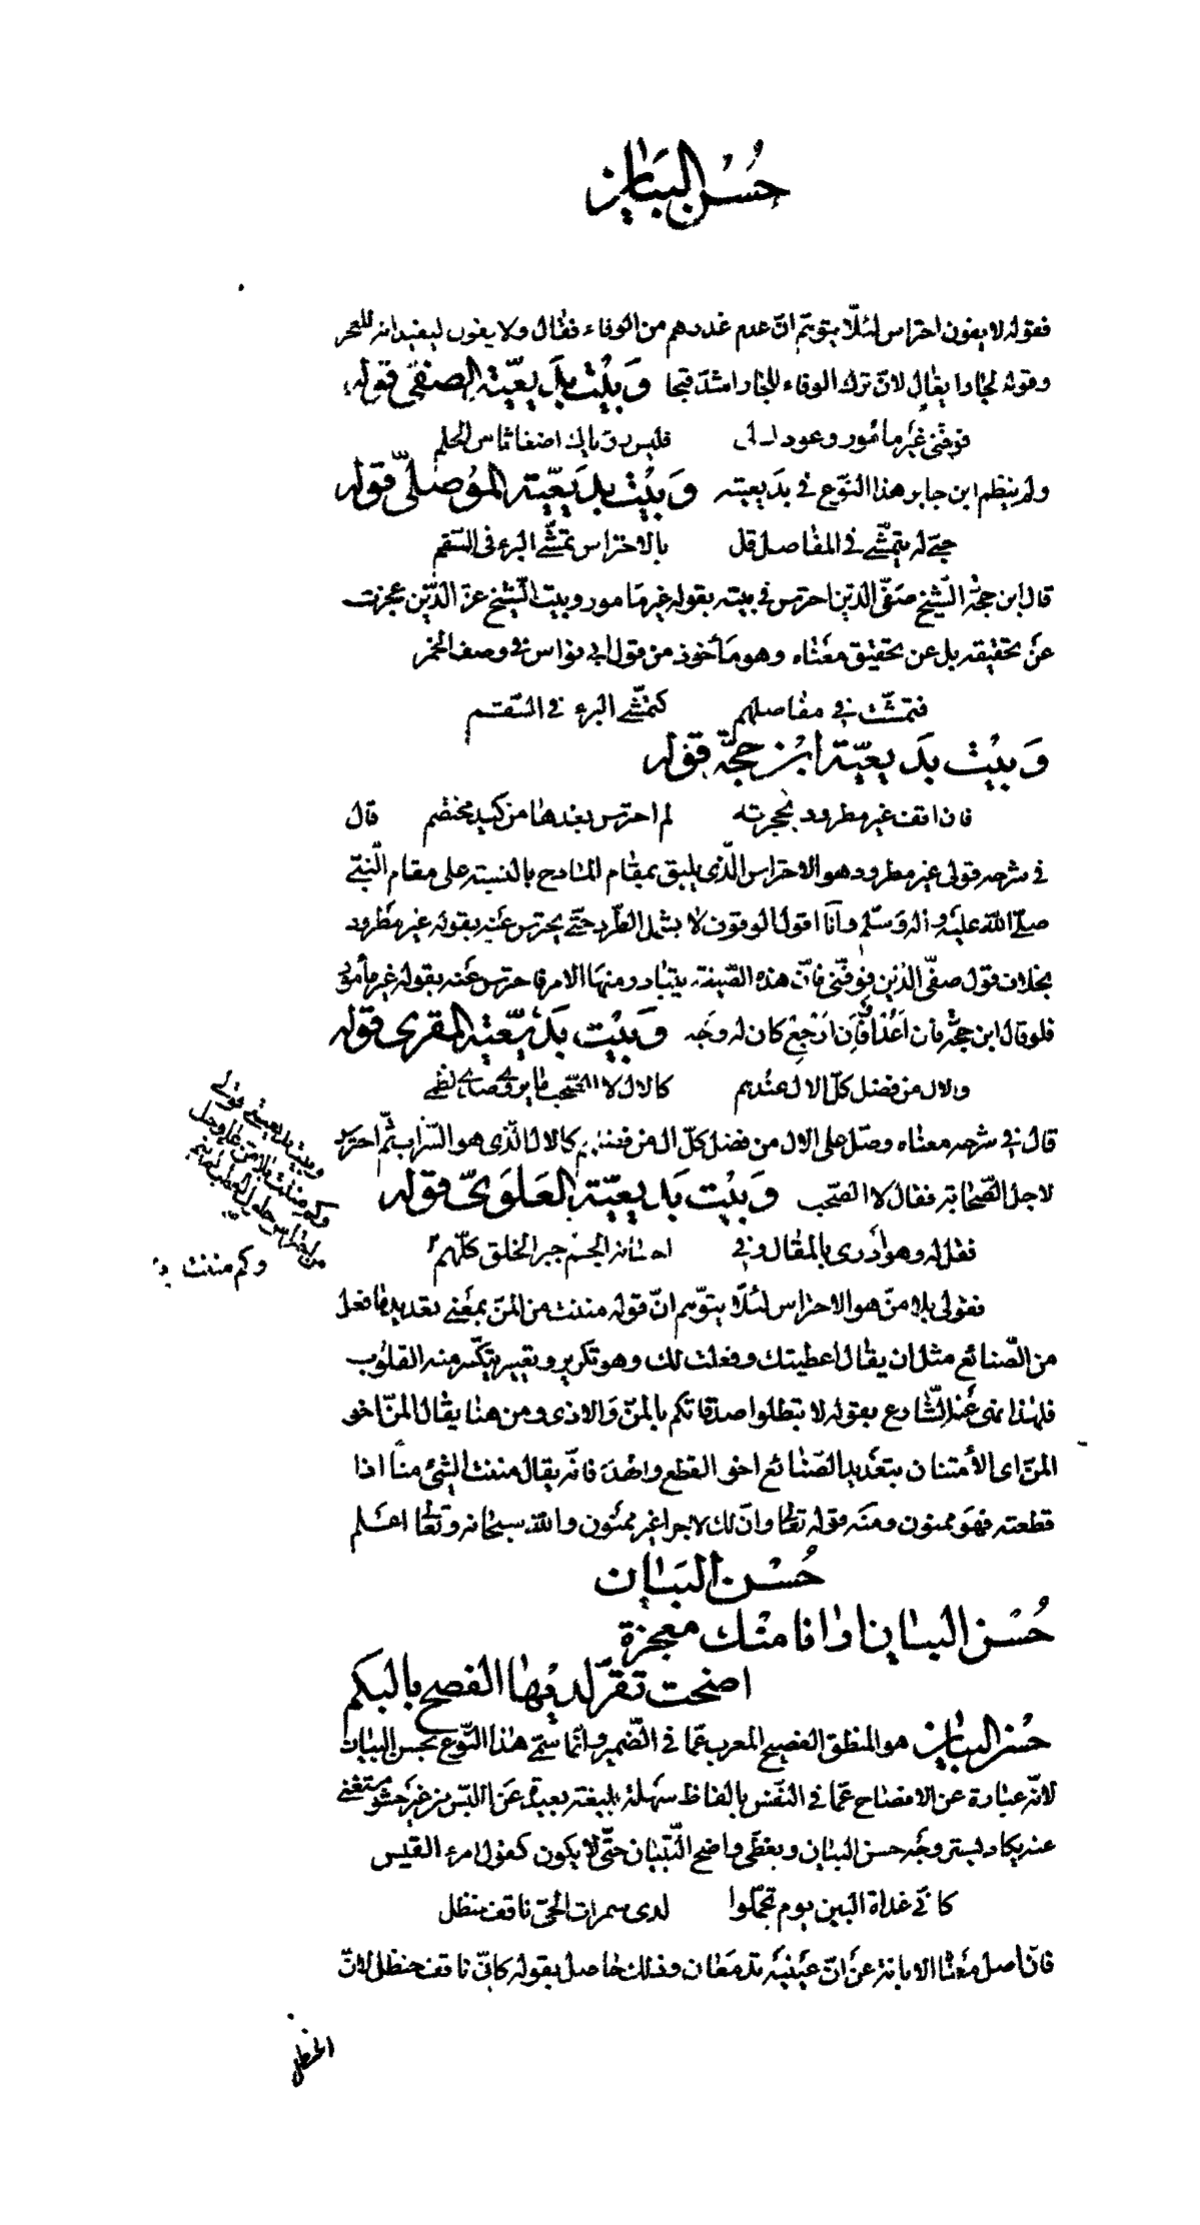 حُسْن البَيَان
فقوله لا يفون احتراس لئلّا يتوهّم انّ عدم غدرهم من الوفاء فقال ولا يفون ليفيد انه للعجز
وقوله لجار دا يقال لانّ ترك الوفاء للجار اشدّ قبحا وَبيْت بدَيعيّته الصفيّ قوله
فوفّني غير مأمور وعودك لى فليس رؤياك اضغاثا من الحلم
ولم ينظم ابن جابر هذا النّوع فى بديعيته وَبيْت بديَعيّته الموُصليّ قوله
حتّى له يتمشّى فى المفاصل قل بالاحتراس تمشّى البرء فى السّقم
قال ابن حجّة الشّيخ صفىّ الدّين احترس فى بيته بقوله غير مأمور وبيت الشّيخ عزّ الدّين عجزت
عن تحقيقه بل عن تحقيق معناه وهو مأخوذ من قول ابى نواس فى وصف الخمر
فتمشّت فى مفاصلهم كتمشّى البرء فى السّقم
وَبيْت بدَيعيّة ابن حجّة قوله
فان اقف غير مطرود بحجرته لم احترس بعدها من كيد مختصم قال
فى شرحه قولى غير مطرود هو الاحتراس الّذى يليق بمقام المادح بالنسبة على مقام النّبىّ
صلّى اللّه عليه وآله وسلّم وانا اقول الوقوف لا يشمل الطّرد حتّى يحترس عنه بقوله غير مطرود
بخلاف قول صفىّ الدّين فوفّنى فانّ هذه الصّيغة يتبادر منها الامر فاحترس عنه بقوله غير مأمور
فلو قال ابن حجّة فان اعد فان ارجع كان له وجه وَبيْت بدَيعيّة المقرى قوله
والال من فضل كلّ الال عندهم كالال لا الصّحب
قال فى شرحه معناه وصلّ على الال من فضل كلّ ال من فضلهم كالال الّذى هو السّراب ثمّ احترس
لاجل الصّحابة فقال لا الصّحب وَبيْت بَديعيّة العَلَويّ قوله
فقل له وهو ادرى بالمقال وفى احسانه الجمّ جبر الخلق كلّهم
وبيت بديعيتى قولى
وكم مننت بلا منّ على وجل
وكم مننت
فقولى بلا منّ هو الاحتراس لئلّا يتوّهم انّ قوله مننت من المنّ بمعنى تعديد ما فعل
من الصّنائع مثل ان يقال اعطيتك وفعلت لك وهو تكرير وتعيير يتكسّر منه القلوب
فلهذا نهى عنه الشّارع بقوله لا تبطلوا صدقاتكم بالمنّ والاذى ومن هنا يقال المنّ اخو
المنّ اى الأمتنان بتعديد الصّنائع اخو القطع والهدم فانّه يقال مننت الشىء منّا اذا
قطعته فهو ممنون ومنه قوله تعالى وانّ لك لاجرا غير ممنون واللّه سبحانه وتعالى اعلم
حُسْن البَيَان
حُسْن البيَان اوانا منك معجزة
اضحت تقرّ لديها الفصح بالبكم
حُسْن البيَان هو المنطق الفصيح المعرب عمّا فى الضّمير وانّما سمّى هذا النّوع بحسن البيان
لانّه عبارة عن الافصاح عمّا فى النّفس بالفاظ سهلة بليغة بعيدة عن اللّبس من غير حشو مستغنى
عنه يكاد يستر وجه حسن البيان ويغطّى واضح التّبيان حتّى لا يكون كقول امرء القيس
كانّى غداة البين يوم تحمّلوا لدى سمرات الحىّ ناقف حنظل
فانّ اصل معناه الابانة عن انّ عينيه تدمعان وذلك حاصل بقوله كانّى ناقف حنظل لانّ
الحنظل